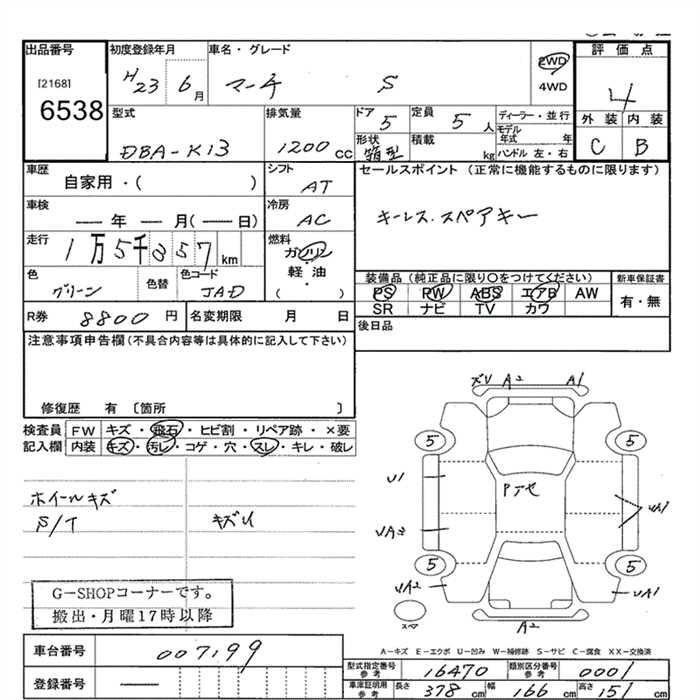 出品番号 初度登録年月 車名・グレード 評価点
[2168] H23 6月 マーチ S 2WD 4
6538 4WD
型式 排気量 ドア 定員 ディーラー・並行 外装 内装
5 5人 モデル年式 年
DBA-K13 1200cc 形状 箱型 積載 kg ハンドル 左・右 C B
車歴 シフト セールスポイント (正常に機能するものに限ります)
自家用・( ) AT
車検 冷房 キーレス.スペアキー
― 年 ― 月(― 日) AC
走行 燃料
1万5千857km ガソリン
色 色替 色コード 軽・油 装備品 (純正品に限り○をつけてください) 新車保証書
グリーン JAD ( ) PS PW ABS エアB AW 有・無
SR ナビ TV カワ
R券 8800円 名変期限 月 日 後日品
注意事項申告欄(不具合内容等は具体的に記入して下さい)
修復歴 有 〔箇所 〕
検査員 FW キズ・飛石・ヒビ割・リペア跡・×要
記入欄 内装 キズ・汚レ・コゲ・穴・スレ・キレ・破レ
ホイールキズ
S/T キズU
G-SHOPコーナーです。
搬出・月曜17時以降
A2 A1
5 5
U1
UA1
5 5
UA2 UA1
スペア A2
A-キズ E-エクボ U-凹み W-補修跡 S-サビ C-腐食 XX-交換済
車台番号 007199 型式指定番号 参考 16470 類別区分番号 参考 0001
登録番号 ― 車庫証明用 参考 長さ 378cm 幅 166cm 高さ 151cm